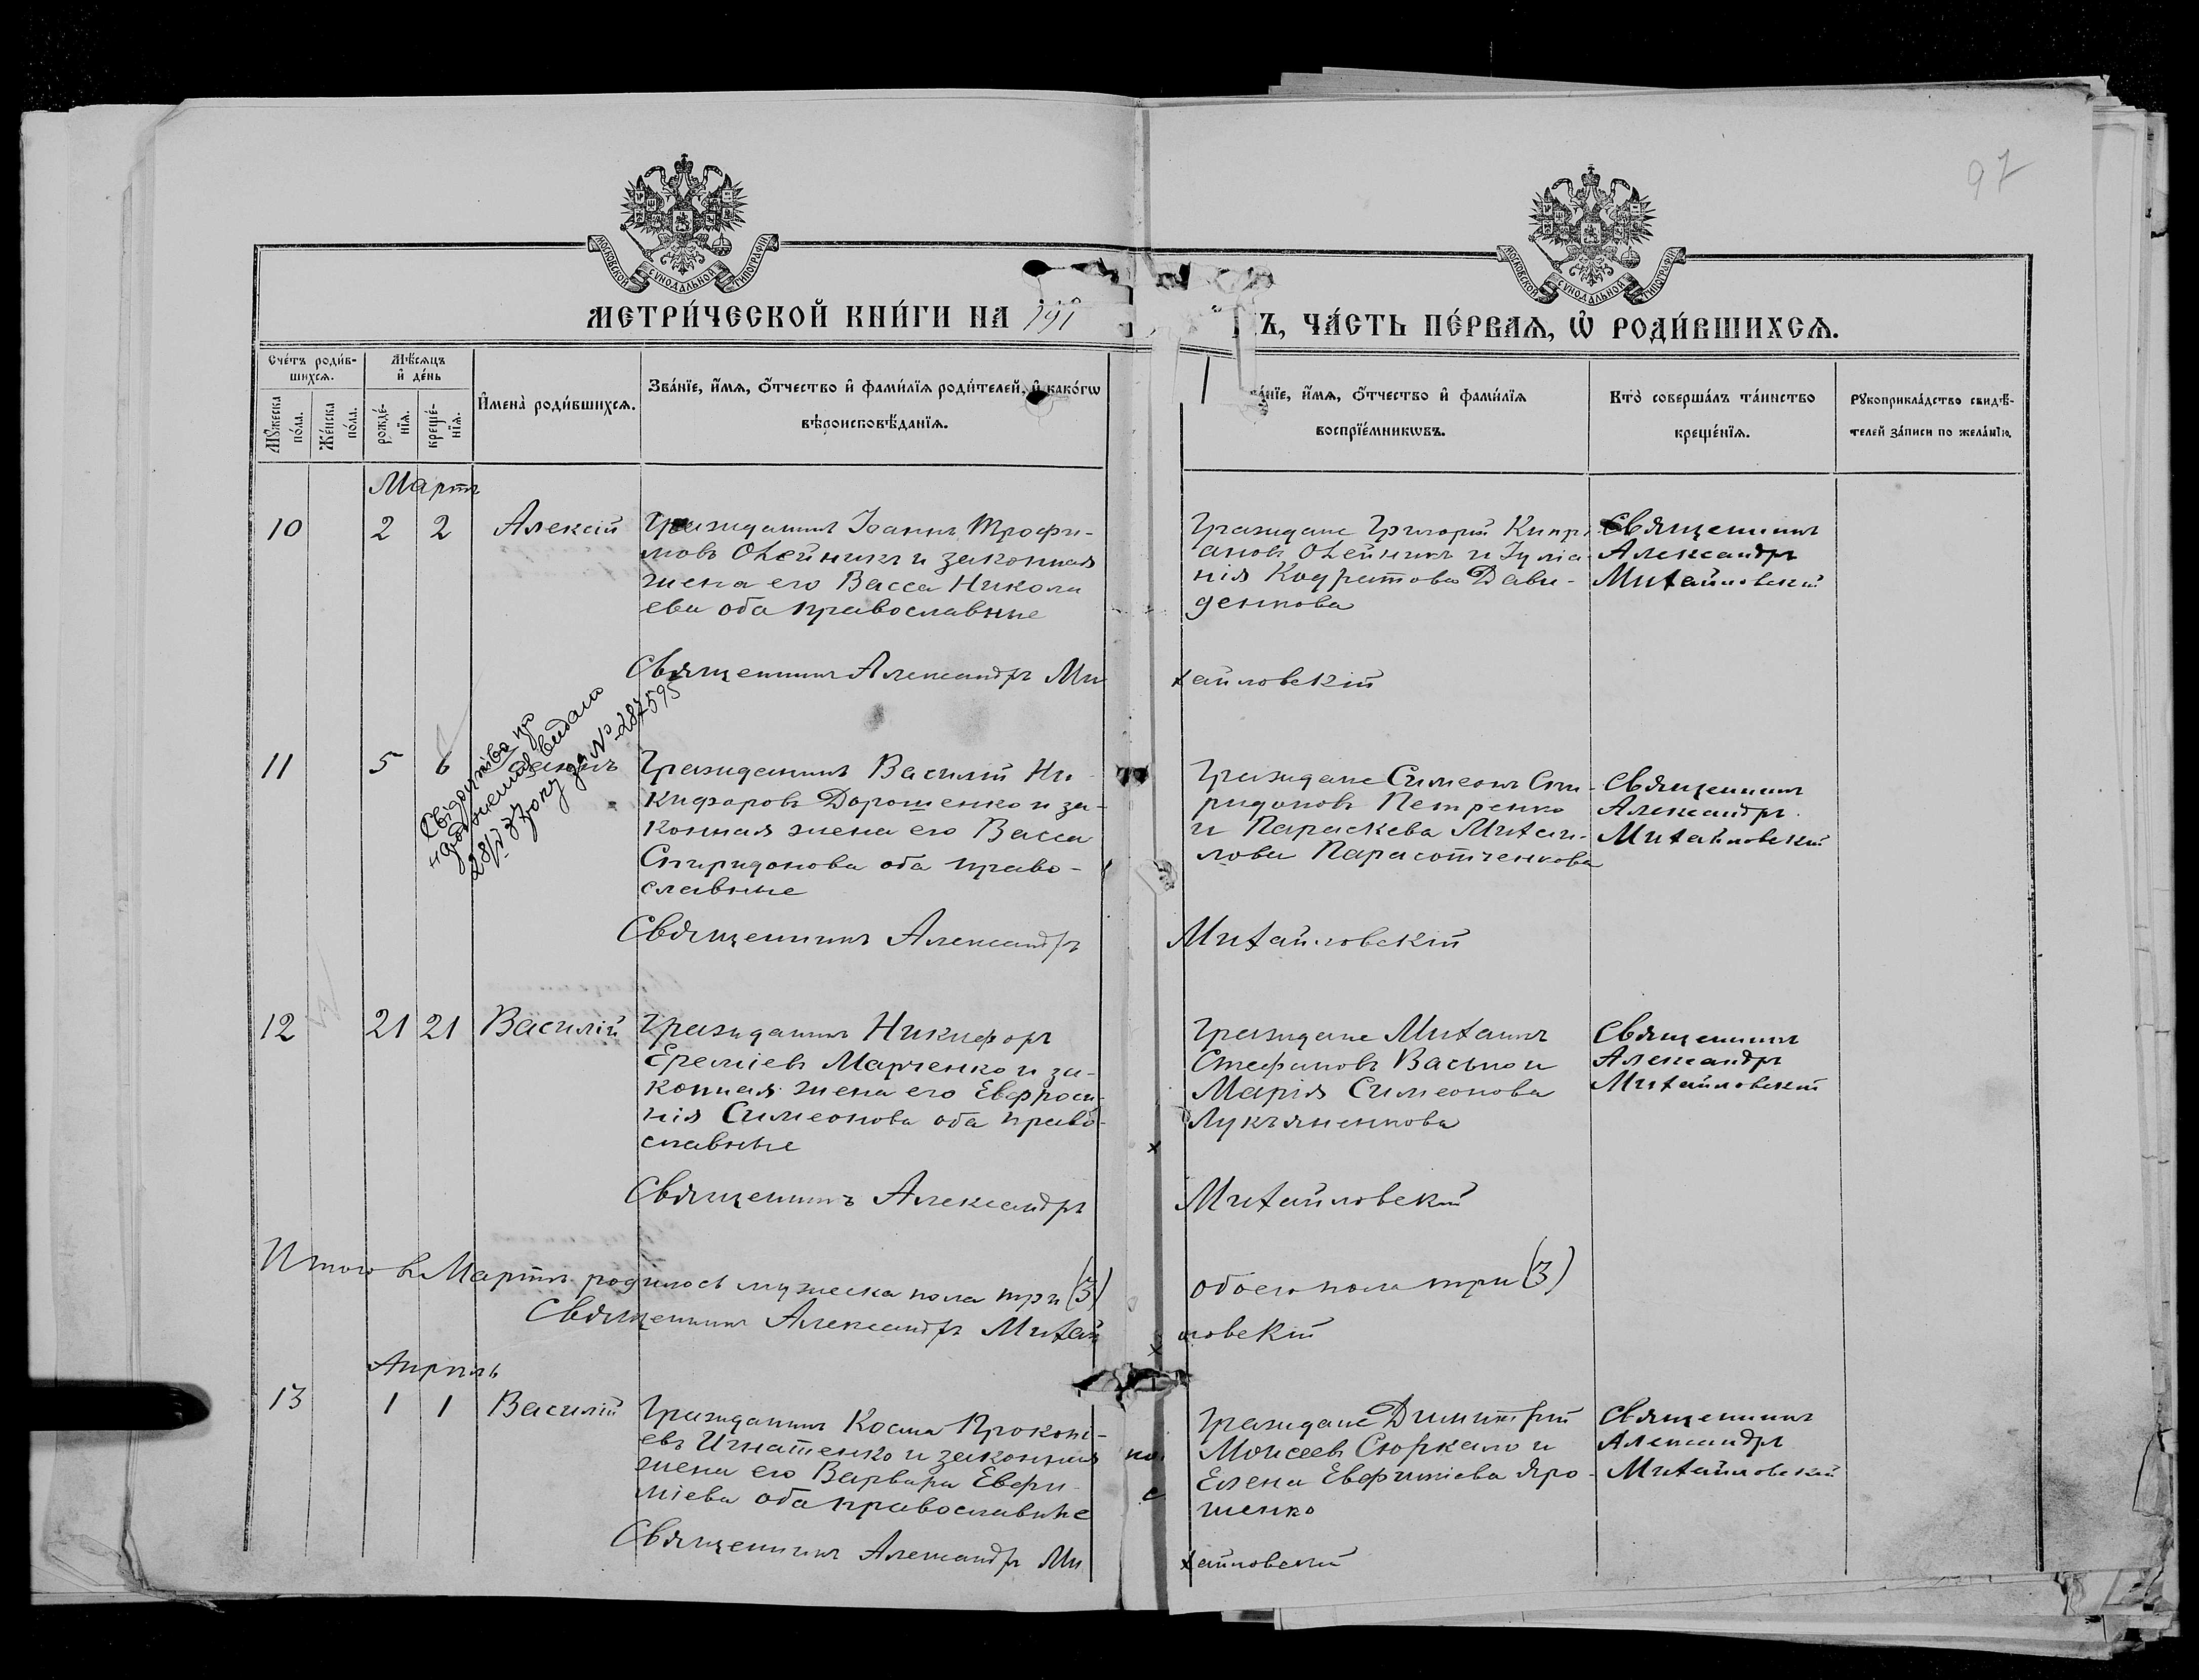 97
МОСКОВСКОЙ СѴНОДАЛЬНОЙ ТИПОГРАФІИ
МОСКОВСКОЙ СѴНОДАЛЬНОЙ ТИПОГРАФІИ
МЕТРИ́ЧЕСКОЙ КНИ́ГИ НА 191
Ъ, ЧА́СТЬ ПЕ́РВАѦ, Ѡ҆ РОДИ́ВШИХСѦ.
Сче́тъ роди́в-
шихсѧ.
Мꙋ́жеска
по́ла.
Же́нска
по́ла.
Мѣ́сѧцъ
и҆ де́нь
рожде́-
нїѧ.
креще́-
нїѧ.
И҆мена̀ роди́вшихсѧ.
Зва́нїе, и҆́мѧ, ѻ҆́тчество и҆ фами́лїѧ роди́телей, и҆ како́гѡ
вѣроисповѣ́данїѧ.
ва́нїе, и҆́мѧ, ѻ҆́тчество и҆ фами́лїѧ
воспрїе́мникѡвъ.
Кто̀ соверша́лъ та́инство
креще́нїѧ.
Рꙋкоприкла́дство свидѣ́-
телей за́писи по жела́нїю.
Мартъ
10
2
2
Алексій
Гражданинъ Іоаннъ Трофи-
мовъ Олейникъ и законная
жена его Васса Никола
ева оба православные
Граждане Григорій Кипрі
ановъ Олейникъ и Іуліа
нія Кодратова Дави-
денкова
Священникъ
Александръ
Михайловскій
Священникъ Александръ Ми
хайловскій
Свідоцтво про
народження видано
28/V 37 року за № 287595
11
5
6
Іоаннъ
Гражданинъ Василій Ни-
кифоровъ Дорошенко и за-
конная жена его Васса
Спиридонова оба право-
славные
Граждане Симеонъ Спи-
ридоновъ Петренко
и Параскева Михаи-
лова Парасотченкова
Священникъ
Александръ
Михайловскій
Священникъ Александръ
Михайловскій
12
21
21
Василій
Гражданинъ Никифоръ
Ереміевъ Марченко и за-
конная жена его Евфроси-
нія Симеонова оба право-
славные
Граждане Михаилъ
Стефановъ Васько и
Марія Симеонова
Лукъяненкова
Священникъ
Александръ
Михайловскій
Священникъ Александръ
Михайловскій
Итого въ Мартѣ родилось мужеска пола три (3)
обоего пола три (3)
Священникъ Александръ Михай
ловскій
Апрѣль
13
1
1
Василій
Гражданинъ Косма Прокопі-
евъ Игнатенко и законная
жена его Варвара Евфи-
міева оба православные
Граждане Димитрій
Моисеевъ Сюркало и
Елена Евфиміева Яро-
шенко
Священникъ
Александръ
Михайловскій
Священникъ Александръ Ми
хайловскій